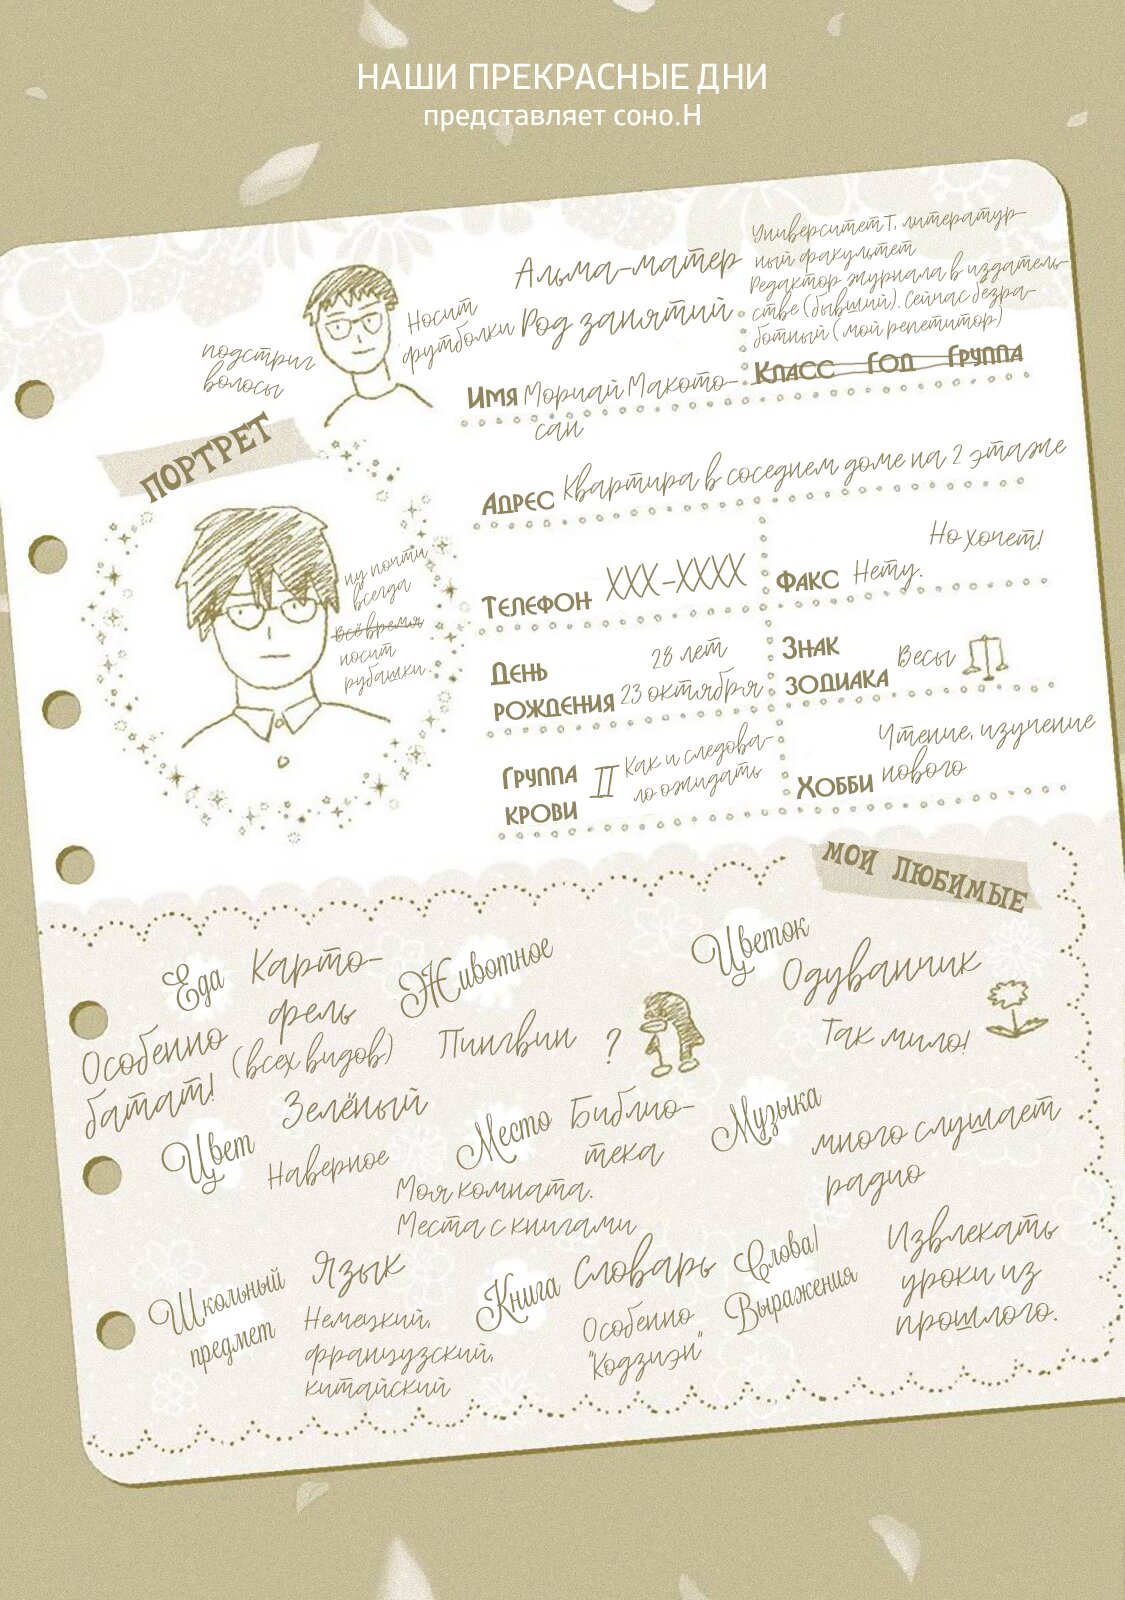 НАШИ ПРЕКРАСНЫЕ ДНИ
представляет соно.Н
Университет Т, литератур-
ный факультет
Альма-матер
Редактор журнала в издатель-
стве (бывший). Сейчас безра-
ботный (мой репетитор)
Род занятий
Носит
футболки
подстриг
волосы
Класс Год Группа
Имя Мориай Макото-
сан
ПОРТРЕТ
Адрес Квартира в соседнем доме на 2 этаже
Но хочет!
Телефон XXX-XXXX
Факс Нету.
ну почти
всегда
всё время
носит
рубашки.
День
рождения
28 лет
23 октября
Знак
зодиака
Весы
Группа
крови
II
Как и следова-
ло ожидать
Хобби
Чтение, изучение
нового
МОИ ЛЮБИМЫЕ
Еда Карто-
фель
(всех видов)
Особенно
батат!
Животное
Пингвин ?
Цветок
Одуванчик
Так мило!
Цвет
Зелёный
Наверное
Место Библио-
тека
Моя комната.
Места с книгами
Музыка
много слушает
радио
Школьный
предмет
Язык
Немецкий,
французский,
китайский
Книга Словарь
Особенно
"Кодзиэн"
Слова/
Выражения
Извлекать
уроки из
прошлого.